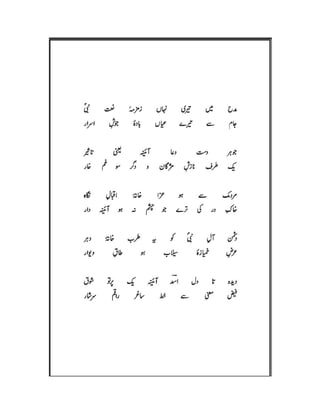 مدح میں تیری نہاں زمزمۂ نعت نبیؐ
جام سے تیرے عیاں بادۂ جوشِ اسرار
جوہرِ دستِ دعا آئینہ یعنی تاثیر
یک طرف نازشِ مژگان و دگر سو غمِ خار
مردمک سے ہو عزا خانۂ اقبالِ نگاہ
خاکِ در کی ترے جو چشم نہ ہو آئینہ دار
دشمنِ آلِ نبیؐ کو بہ طرب خانۂ دہر
عرضِ خمیازۂ سیلاب ہو طاقِ دیوار
دیدہ تا دل اسدؔ آئینہ یک پرتوِ شوق
فیضِ معنی سے خطِ ساغرِ راقم سرشار